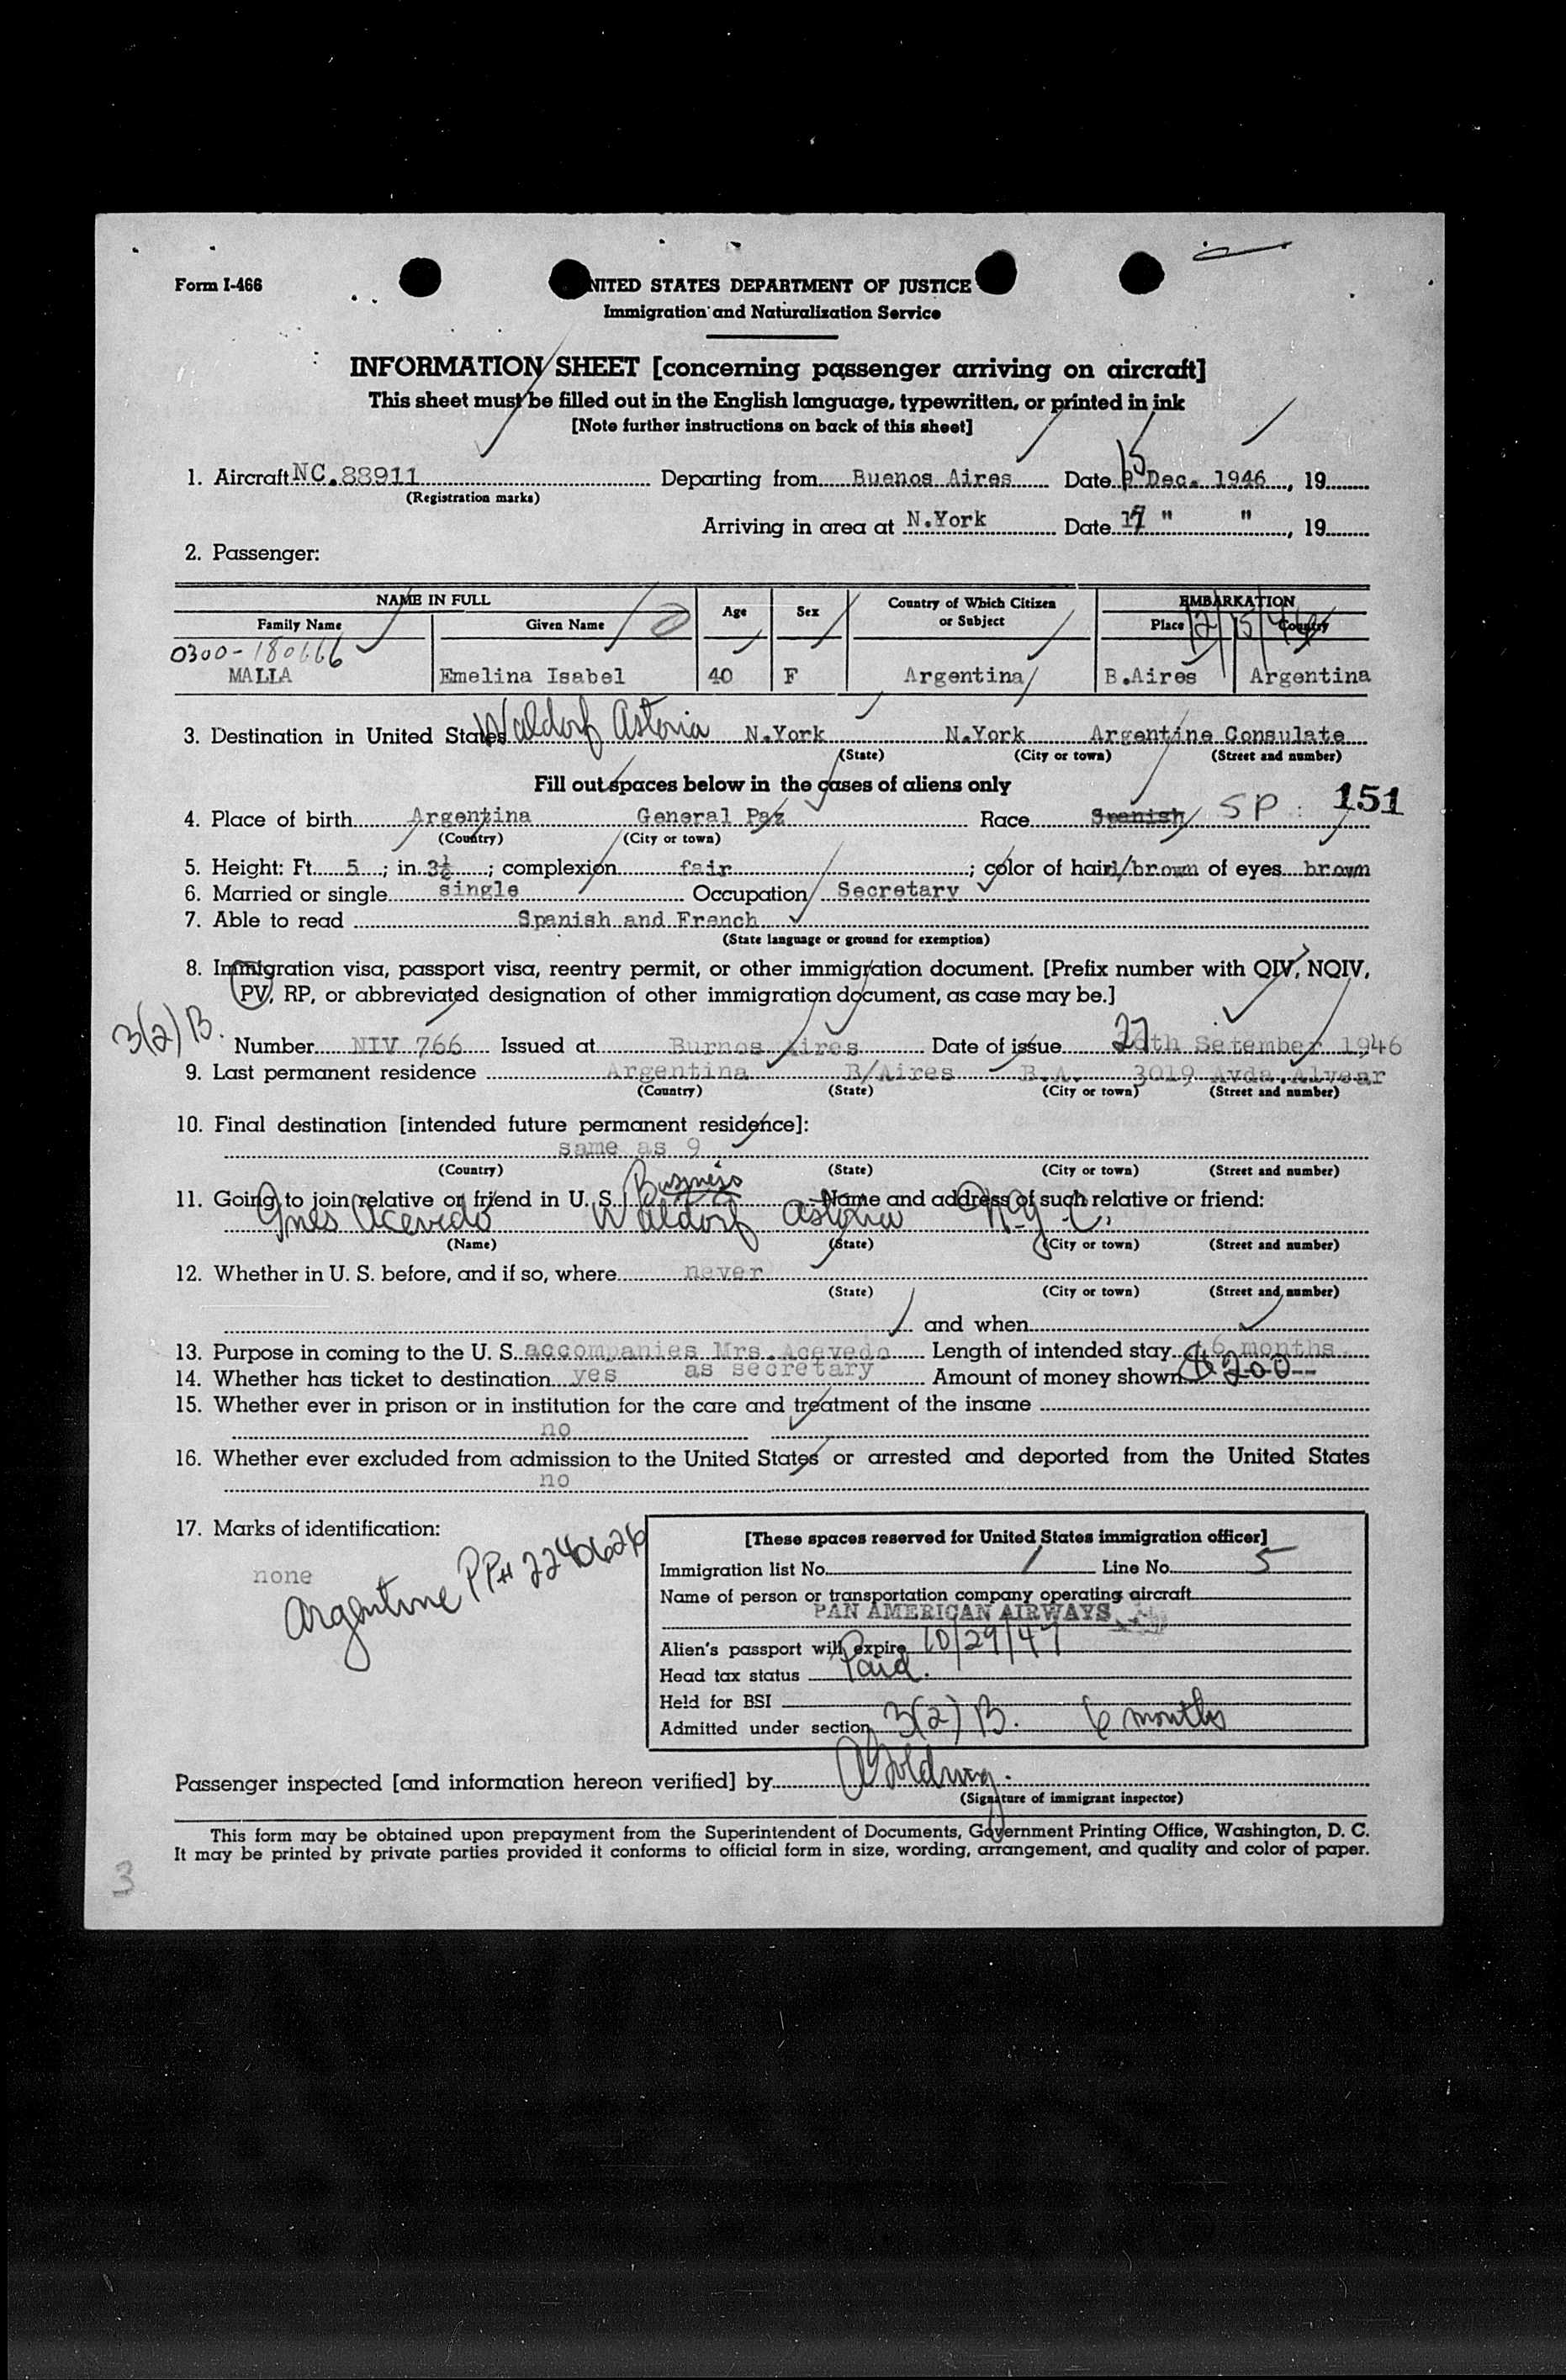 Form I-466
UNITED STATES DEPARTMENT OF JUSTICE
Immigration and Naturalization Service
INFORMATION SHEET [concerning passenger arriving on aircraft]
This sheet must be filled out in the English language, typewritten, or printed in ink
[Note further instructions on back of this sheet]
15
1. Aircraft NC.88911 Departing from Buenos Aires Date Dec. 1946, 19
(Registration marks)
Arriving in area at N.York Date 17 " ", 19
2. Passenger:
NAME IN FULL Age Sex Country of Which Citizen or Subject EMBARKATION
Family Name Given Name Place Country 12/15/46
0300-180666
MALLA Emelina Isabel 40 F Argentina B.Aires Argentina
3. Destination in United States Waldorf Astoria N.York N.York Argentine Consulate
(State) (City or town) (Street and number)
Fill out spaces below in the cases of aliens only
151
4. Place of birth Argentina General Paz Race Spanish SP.
(Country) (City or town)
5. Height: Ft. 5; in. 3½; complexion fair; color of hair l/brown of eyes brown
6. Married or single single Occupation Secretary
7. Able to read Spanish and French
(State language or ground for exemption)
8. Immigration visa, passport visa, reentry permit, or other immigration document. [Prefix number with QIV, NQIV,
PV, RP, or abbreviated designation of other immigration document, as case may be.]
3(2)B.
Number NIV 766 Issued at Burnos Aires Date of issue 27th Setember 1946
9. Last permanent residence Argentina B/Aires B.A. 3019 Avda.Alvear
(Country) (State) (City or town) (Street and number)
10. Final destination [intended future permanent residence]:
same as 9
(Country) (State) (City or town) (Street and number)
Business
11. Going to join relative or friend in U. S. Name and address of such relative or friend:
Ines Acevedo Waldorf Astoria N.Y.C.
(Name) (State) (City or town) (Street and number)
12. Whether in U. S. before, and if so, where never
(State) (City or town) (Street and number)
and when
13. Purpose in coming to the U. S. accompanies Mrs.Acevedo Length of intended stay 6 months.
as secretary
14. Whether has ticket to destination yes Amount of money shown $200--
15. Whether ever in prison or in institution for the care and treatment of the insane
no
16. Whether ever excluded from admission to the United States or arrested and deported from the United States
no
17. Marks of identification:
none
Argentine PP# 2240626
[These spaces reserved for United States immigration officer]
Immigration list No. 1 Line No. 5
Name of person or transportation company operating aircraft
PAN AMERICAN AIRWAYS
Alien's passport will expire 10/29/47
Head tax status Paid.
Held for BSI
Admitted under section 3(2) B. 6 months
Passenger inspected [and information hereon verified] by
(Signature of immigrant inspector)
This form may be obtained upon prepayment from the Superintendent of Documents, Government Printing Office, Washington, D. C.
It may be printed by private parties provided it conforms to official form in size, wording, arrangement, and quality and color of paper.
3